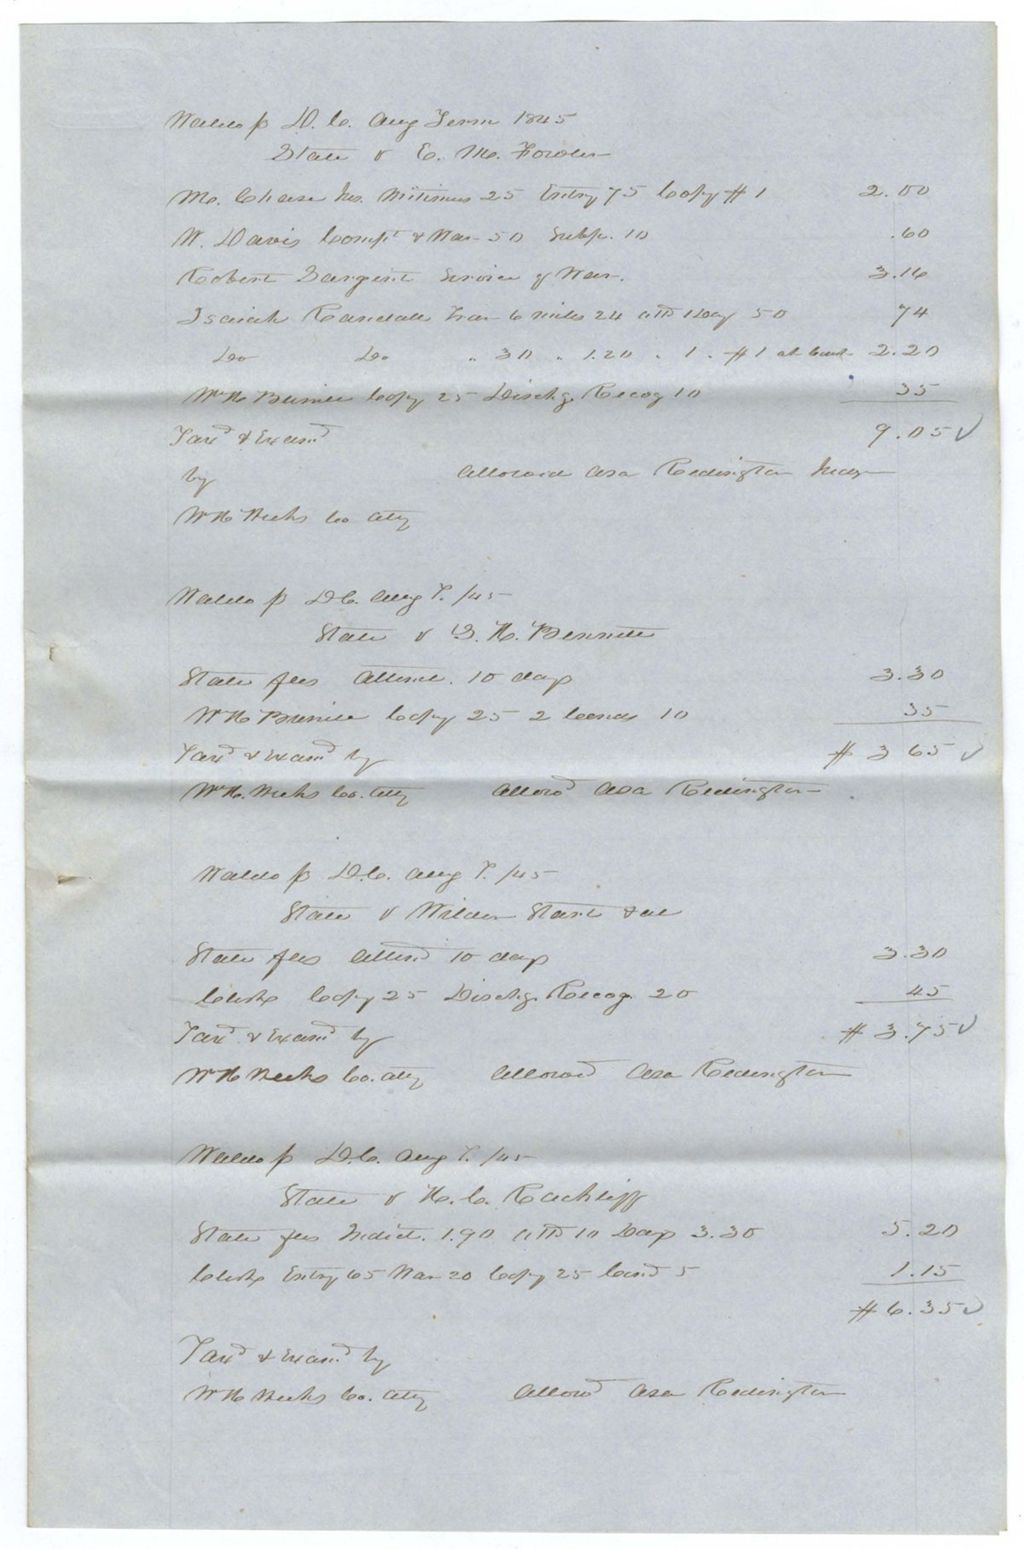 Waldo ss D.C. Aug Term 1845
State v E. M. Fowler
M. Chase Jus. Mittimus 25 Entry 75 Copy $1 2.00
W. Davis Compt & War 50 Subp. 10 .60
Robert Sargent Service of War. 3.16
Isaiah Randall Trav 6 miles 24 attd 1 Day 50 74
Do Do " 30 " 1.20 " 1 " $1 at Court 2.20
Wm H Burrill Copy 25 Dischg. Recog 10 35
Taxd & Examd 9.05
by Allowed Asa Redington Judge
W H Weeks Co. Atty
Waldo ss D.C. Aug T. /45
State v H. Bennett
State fees Attend. 10 days 3.30
Wm H Burrill Copy 25 2 Contd 10 35
Taxd & Examd by $3 65
Wm H. Weeks Co. Atty Allowd Asa Redington
Waldo ss D.C. Aug T. /45
State v Start & al
State fees Attend 10 days 3.30
Clerks Copy 25 Dischg. Recog. 20 45
Taxd & Examd by $3.75
Wm H Weeks Co. Atty Allowed Asa Redington
Waldo ss D.C. Aug T. /45
State v H. C. Rackliff
State fees Indict. 1.90 attd 10 Days 3.30 5.20
Clerks Entry 65 War 20 Copy 25 Contd 5 1.15
$6.35
Taxd & Examd by
Wm H Weeks Co. Atty Allowd Asa Redington